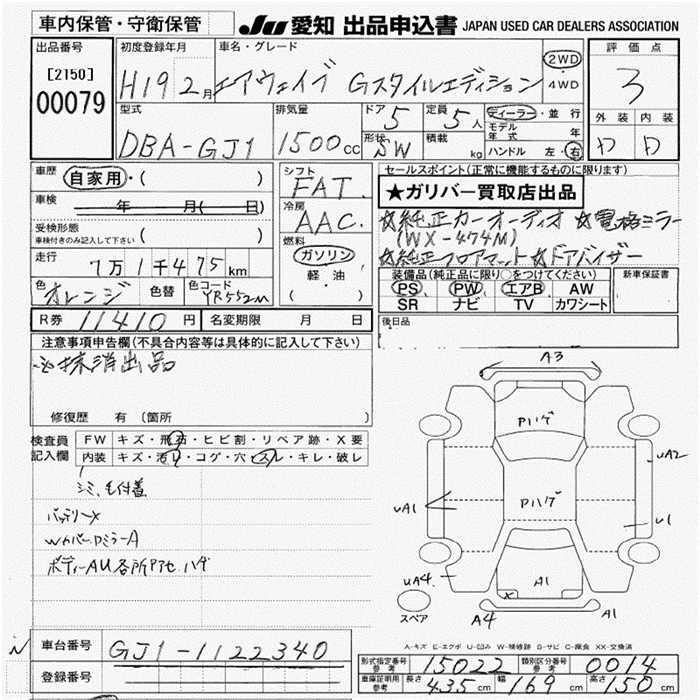 車内保管・守衛保管
JU 愛知 出品申込書 JAPAN USED CAR DEALERS ASSOCIATION
出品番号
[2150]
00079
初度登録年月
H19 2月
車名・グレード
エアウェイブ Gスタイルエディション
2WD
・
4WD
評価点
3
外装 内装
D D
型式
DBA-GJ1
排気量
1500cc
ドア
5
定員
5人
形状
SW
積載
kg
ディーラー・並行
モデル年式 年
ハンドル 左・右
車歴
自家用・( )
車検
年 月( 日)
受検形態
車検付きのみ記入して下さい ( )
走行
7万1千475km
色
オレンジ
色替
色コード
YR552M
シフト
FAT.
冷房
AAC.
燃料
ガソリン
軽油
( )
セールスポイント(正常に機能するものに限ります)
★ガリバー買取店出品
☆純正カーオーディオ ☆電格ミラー
(WX-474M)
☆純正フロアマット ☆ドアバイザー
装備品(純正品に限り○をつけてください)
PS PW エアB AW
SR ナビ TV カワシート
新車保証書
後日品
R券 11410円
名変期限 月 日
注意事項申告欄(不具合内容等は具体的に記入して下さい)
※抹消出品
修復歴 有(箇所
検査員
記入欄
FW キズ・飛石・ヒビ割・リペア跡・X要
内装 キズ・汚レ・コゲ・穴・スレ・キレ・破レ
シミ、毛付着
バッテリーX
WカバーDミラーA
ボディーAU各所
ハゲ
A3
Pハゲ
UA2
UA1
Pハゲ
U1
UA4
A1
X
スペア
A4
A1
A-キズ E-エクボ U-凹み W-補修跡 S-サビ C-腐食 XX-交換済
車台番号
GJ1-1122340
登録番号
形式指定番号
参考
15022
類別区分番号
参考
0014
車庫証明用
参考
長さ 435cm
幅 169cm
高さ 150cm